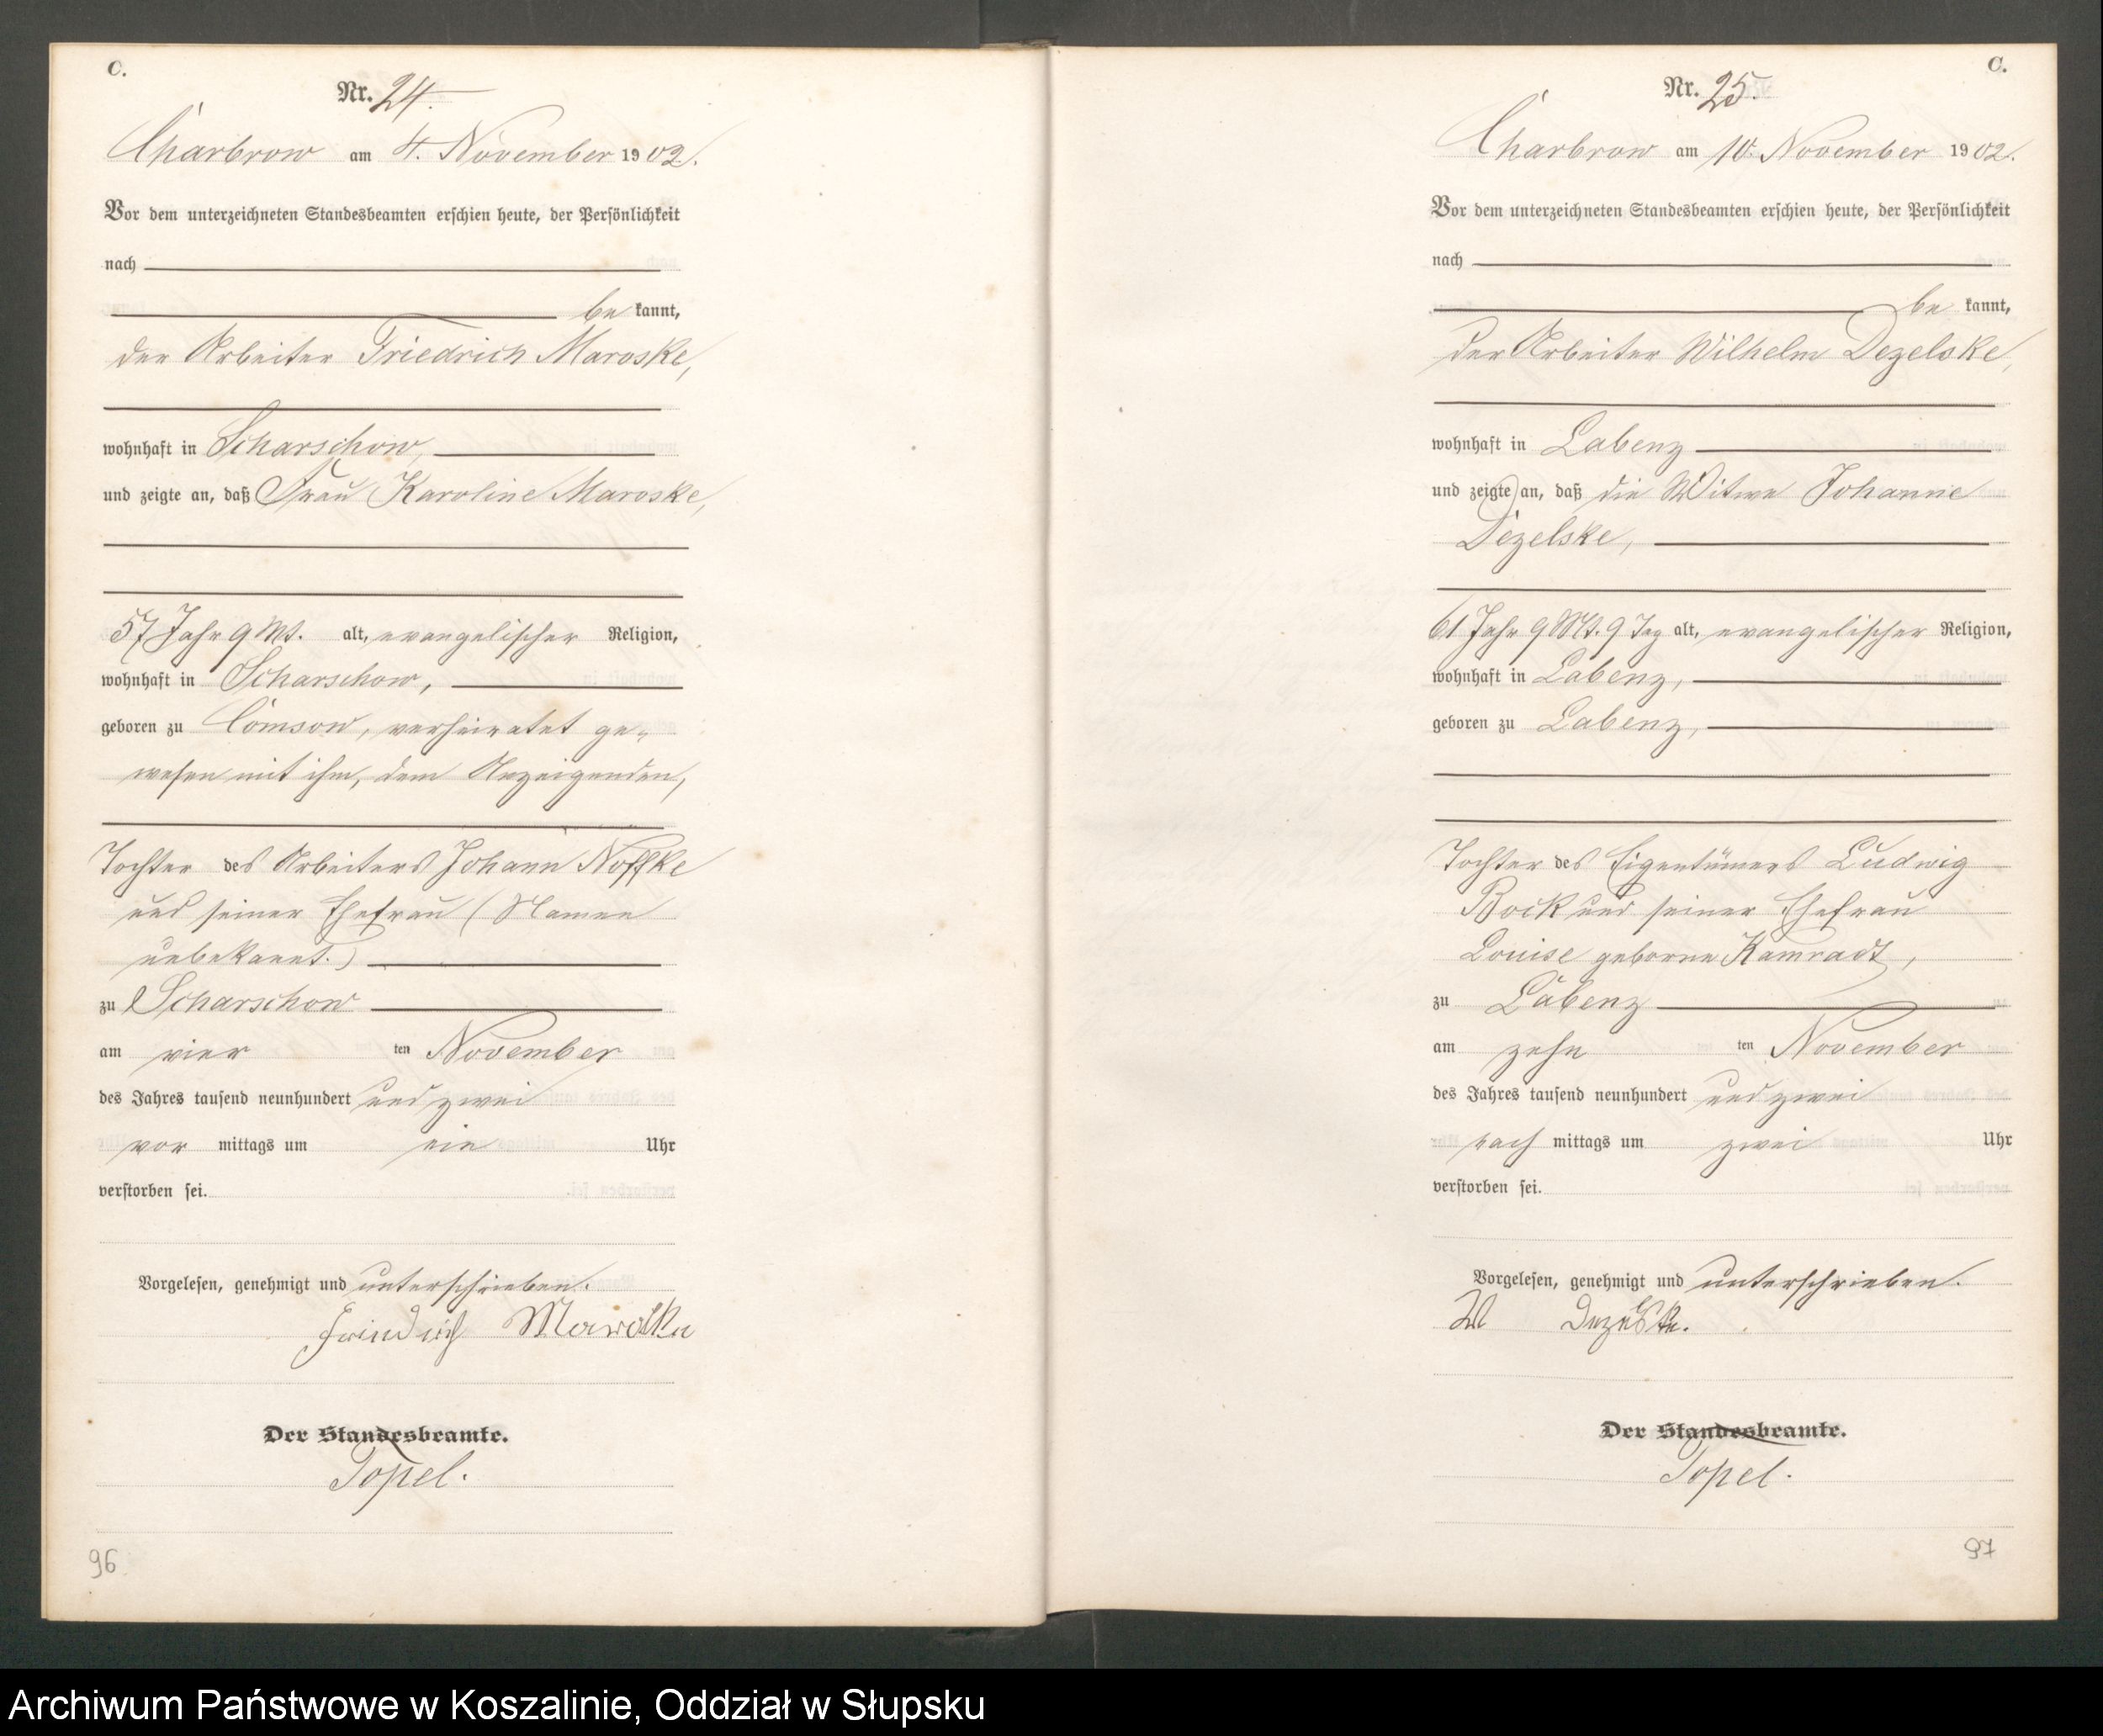 C.
Nr. 24.
Charbrow am 4. November 1902.
Vor dem unterzeichneten Standesbeamten erschien heute, der Persönlichkeit
nach
be kannt,
der Arbeiter Friedrich Maroske,
wohnhaft in Scharschow,
und zeigte an, daß Frau Karoline Maroske,
57 Jahr 9 Mt. alt, evangelischer Religion,
wohnhaft in Scharschow,
geboren zu Comsow, verheiratet ge-
wesen mit ihm, dem Anzeigenden,
Tochter des Arbeiters Johann Noffke
und seiner Ehefrau (Namen
unbekannt.)
zu Scharschow
am vier ten November
des Jahres tausend neunhundert und zwei
vor mittags um ein Uhr
verstorben sei.
Vorgelesen, genehmigt und unterschrieben.
Friedrich Maroske
Der Standesbeamte.
Topel.
96
C.
Nr. 25.
Charbrow am 10. November 1902.
Vor dem unterzeichneten Standesbeamten erschien heute, der Persönlichkeit
nach
be kannt,
der Arbeiter Wilhelm Dezelske,
wohnhaft in Labenz
und zeigte an, daß die Witwe Johanne
Dezelske,
61 Jahr 9 Mt. 9 Tag alt, evangelischer Religion,
wohnhaft in Labenz,
geboren zu Labenz,
Tochter des Eigentümers Ludwig
Bock und seiner Ehefrau
Louise geborne Kamradt,
zu Labenz
am zehn ten November
des Jahres tausend neunhundert und zwei
nach mittags um zwei Uhr
verstorben sei.
Vorgelesen, genehmigt und unterschrieben.
W Dezelske.
Der Standesbeamte.
Topel.
97
Archiwum Państwowe w Koszalinie, Oddział w Słupsku